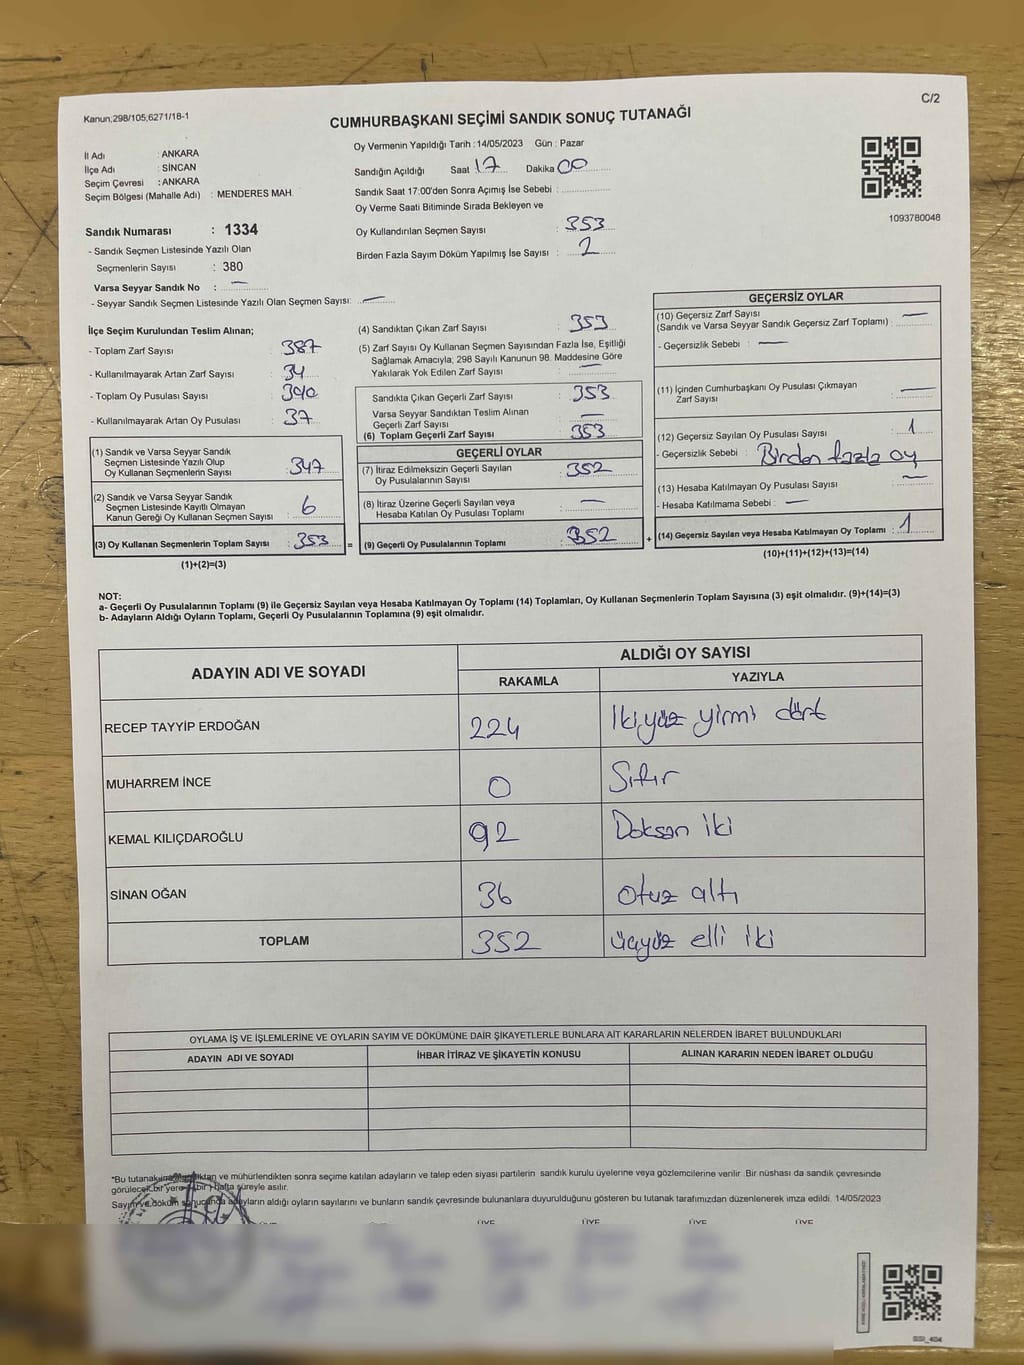 Kanun;298/105;6271/18-1
C/2
CUMHURBAŞKANI SEÇİMİ SANDIK SONUÇ TUTANAĞI
İl Adı : ANKARA
İlçe Adı : SİNCAN
Seçim Çevresi : ANKARA
Seçim Bölgesi (Mahalle Adı) : MENDERES MAH.
Oy Vermenin Yapıldığı Tarih : 14/05/2023 Gün : Pazar
Sandığın Açıldığı Saat 17 Dakika 00
Sandık Saat 17:00'den Sonra Açımış İse Sebebi :
Oy Verme Saati Bitiminde Sırada Bekleyen ve
Oy Kullandırılan Seçmen Sayısı : 353
Birden Fazla Sayım Döküm Yapılmış İse Sayısı : 2
1093780048
Sandık Numarası : 1334
- Sandık Seçmen Listesinde Yazılı Olan
Seçmenlerin Sayısı : 380
Varsa Seyyar Sandık No : —
- Seyyar Sandık Seçmen Listesinde Yazılı Olan Seçmen Sayısı: —
İlçe Seçim Kurulundan Teslim Alınan;
- Toplam Zarf Sayısı : 387
- Kullanılmayarak Artan Zarf Sayısı : 34
- Toplam Oy Pusulası Sayısı : 390
- Kullanılmayarak Artan Oy Pusulası : 37
(1) Sandık ve Varsa Seyyar Sandık
Seçmen Listesinde Yazılı Olup
Oy Kullanan Seçmenlerin Sayısı : 347
(2) Sandık ve Varsa Seyyar Sandık
Seçmen Listesinde Kayıtlı Olmayan
Kanun Gereği Oy Kullanan Seçmen Sayısı : 6
(3) Oy Kullanan Seçmenlerin Toplam Sayısı : 353 =
(1)+(2)=(3)
(4) Sandıktan Çıkan Zarf Sayısı : 353
(5) Zarf Sayısı Oy Kullanan Seçmen Sayısından Fazla İse, Eşitliği
Sağlamak Amacıyla; 298 Sayılı Kanunun 98. Maddesine Göre
Yakılarak Yok Edilen Zarf Sayısı : —
Sandıkta Çıkan Geçerli Zarf Sayısı : 353
Varsa Seyyar Sandıktan Teslim Alınan
Geçerli Zarf Sayısı : —
(6) Toplam Geçerli Zarf Sayısı : 353
GEÇERLİ OYLAR
(7) İtiraz Edilmeksizin Geçerli Sayılan
Oy Pusulalarının Sayısı : 352
(8) İtiraz Üzerine Geçerli Sayılan veya
Hesaba Katılan Oy Pusulası Toplamı : —
(9) Geçerli Oy Pusulalarının Toplamı : 352 +
GEÇERSİZ OYLAR
(10) Geçersiz Zarf Sayısı
(Sandık ve Varsa Seyyar Sandık Geçersiz Zarf Toplamı) : —
- Geçersizlik Sebebi : —
(11) İçinden Cumhurbaşkanı Oy Pusulası Çıkmayan
Zarf Sayısı : —
(12) Geçersiz Sayılan Oy Pusulası Sayısı : 1
- Geçersizlik Sebebi : Birden fazla oy
(13) Hesaba Katılmayan Oy Pusulası Sayısı : —
- Hesaba Katılmama Sebebi : —
(14) Geçersiz Sayılan veya Hesaba Katılmayan Oy Toplamı : 1
(10)+(11)+(12)+(13)=(14)
NOT:
a- Geçerli Oy Pusulalarının Toplamı (9) ile Geçersiz Sayılan veya Hesaba Katılmayan Oy Toplamı (14) Toplamları, Oy Kullanan Seçmenlerin Toplam Sayısına (3) eşit olmalıdır. (9)+(14)=(3)
b- Adayların Aldığı Oyların Toplamı, Geçerli Oy Pusulalarının Toplamına (9) eşit olmalıdır.
ADAYIN ADI VE SOYADI
ALDIĞI OY SAYISI
RAKAMLA YAZIYLA
RECEP TAYYİP ERDOĞAN 224 İkiyüz yirmi dört
MUHARREM İNCE 0 Sıfır
KEMAL KILIÇDAROĞLU 92 Doksan iki
SİNAN OĞAN 36 otuz altı
TOPLAM 352 üçyüz elli iki
OYLAMA İŞ VE İŞLEMLERİNE VE OYLARIN SAYIM VE DÖKÜMÜNE DAİR ŞİKAYETLERLE BUNLARA AİT KARARLARIN NELERDEN İBARET BULUNDUKLARI
ADAYIN ADI VE SOYADI İHBAR İTİRAZ VE ŞİKAYETİN KONUSU ALINAN KARARIN NEDEN İBARET OLDUĞU
*Bu tutanak ve mühürlendikten sonra seçime katılan adayların ve talep eden siyasi partilerin sandık kurulu üyelerine veya gözlemcilerine verilir. Bir nüshası da sandık çevresinde
görülecek bir yere (bir) hafta süreyle asılır.
Sayım ve döküm sonucunda adayların aldığı oyların sayılarını ve bunların sandık çevresinde bulunanlara duyurulduğunu gösteren bu tutanak tarafımızdan düzenlenerek imza edildi. 14/05/2023
ÜYE ÜYE ÜYE ÜYE